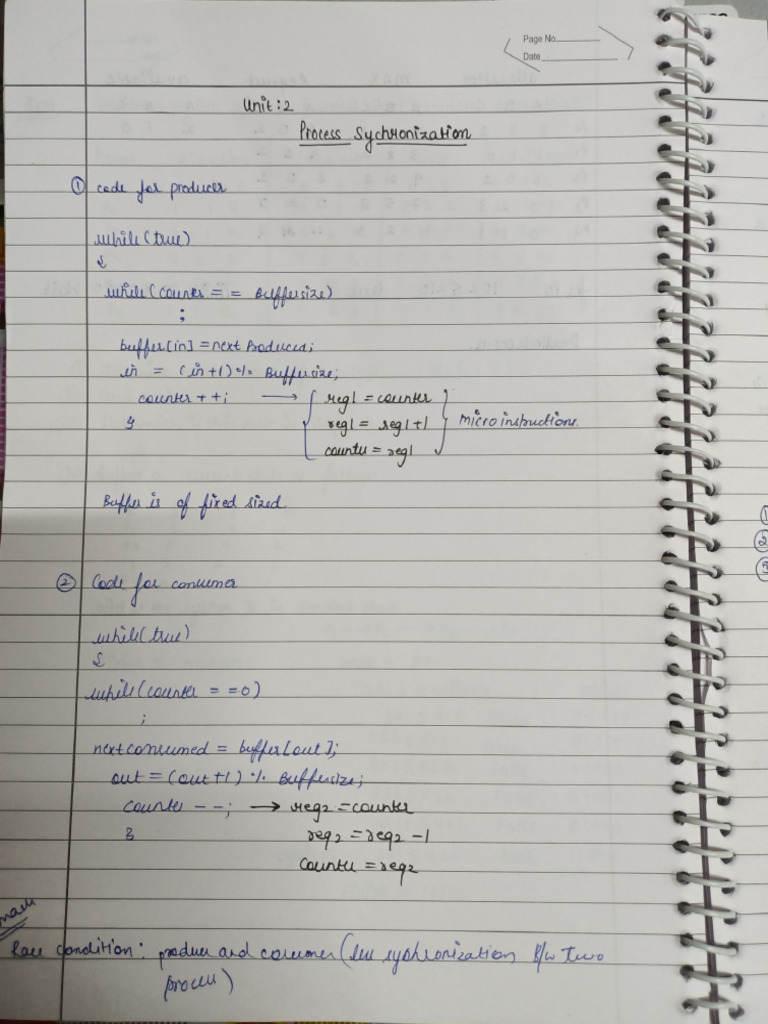 Page No.
Date
Unit:2
Process Sychronization
① code for producer
while(true)
{
while(counter = = Buffersize)
;
buffer[in] = next Produced;
in = (in+1) % Buffersize;
counter ++; → reg1 = counter
} reg1 = reg1 +1 } Micro instructions.
counter = reg1
Buffer is of fixed sized
② Code for consumer
while(true)
{
while(counter = =0)
;
nextconsumed = buffer[out];
out = (out+1) % Buffersize;
counter --; → reg2 = counter
} reg2 = reg2 -1
counter = reg2
Race condition: producer and consumer ( sychronization B/w Two
process)
①
②
③